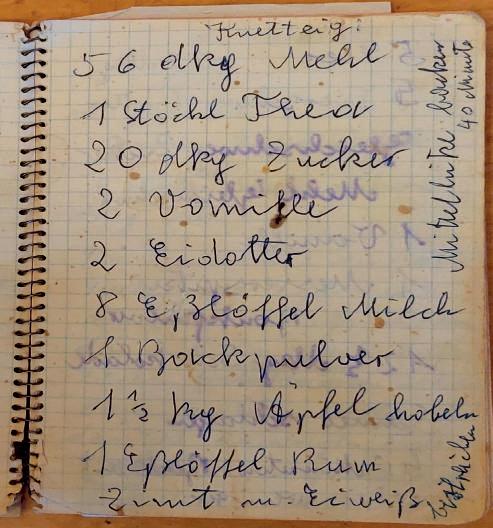 Knetteig:
56 dkg Mehl
1 Stöckl Thea
20 dkg Zucker
2 Vanille
2 Eidotter
8 Eßlöffel Milch
1 Backpulver
1 1/2 kg Äpfel hobeln
1 Eßlöffel Rum
Zimt m. Eiweiß bestreichen
Mittelhitze backen
40 Minute